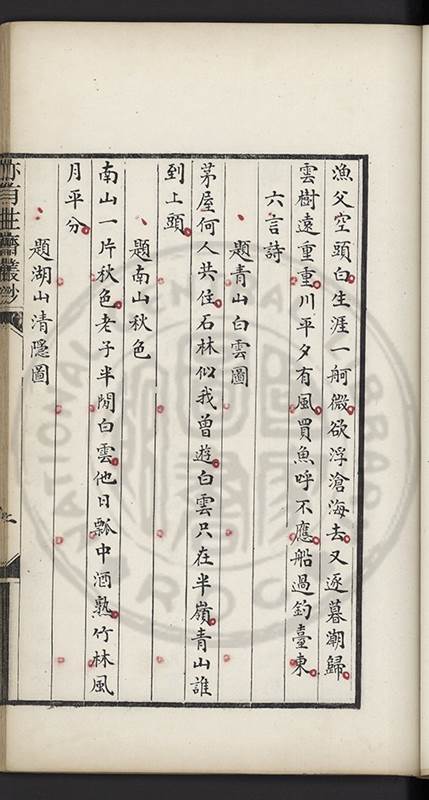 漁父空頭白生涯一舸微欲浮滄海去又逐暮潮歸
雲樹遠重重川平夕有風買魚呼不應船過釣臺東
六言詩
題青山白雲圖
茅屋何人共住石林似我曾遊白雲只在半嶺青山誰
到上頭
題南山秋色
南山一片秋色老子半閒白雲他日瓢中酒熟竹林風
月平分
題湖山清隱圖